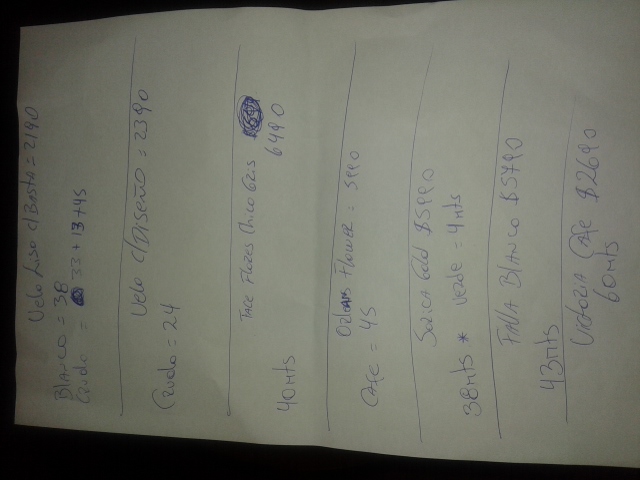 Velo Liso c/Basta = 2190
Blanco = 38
Crudo = 33 + 13 + 45
Velo c/Diseño = 2390
Crudo = 24
Tace Flores Chico Gris
6490
40 mts
Orleans Flower = 5990
Cafe = 45
Sorica Gold $5990
38 mts * Verde = 4 mts
Falla Blanco $5790
43 mts
Victoria Cafe $2690
60 mts